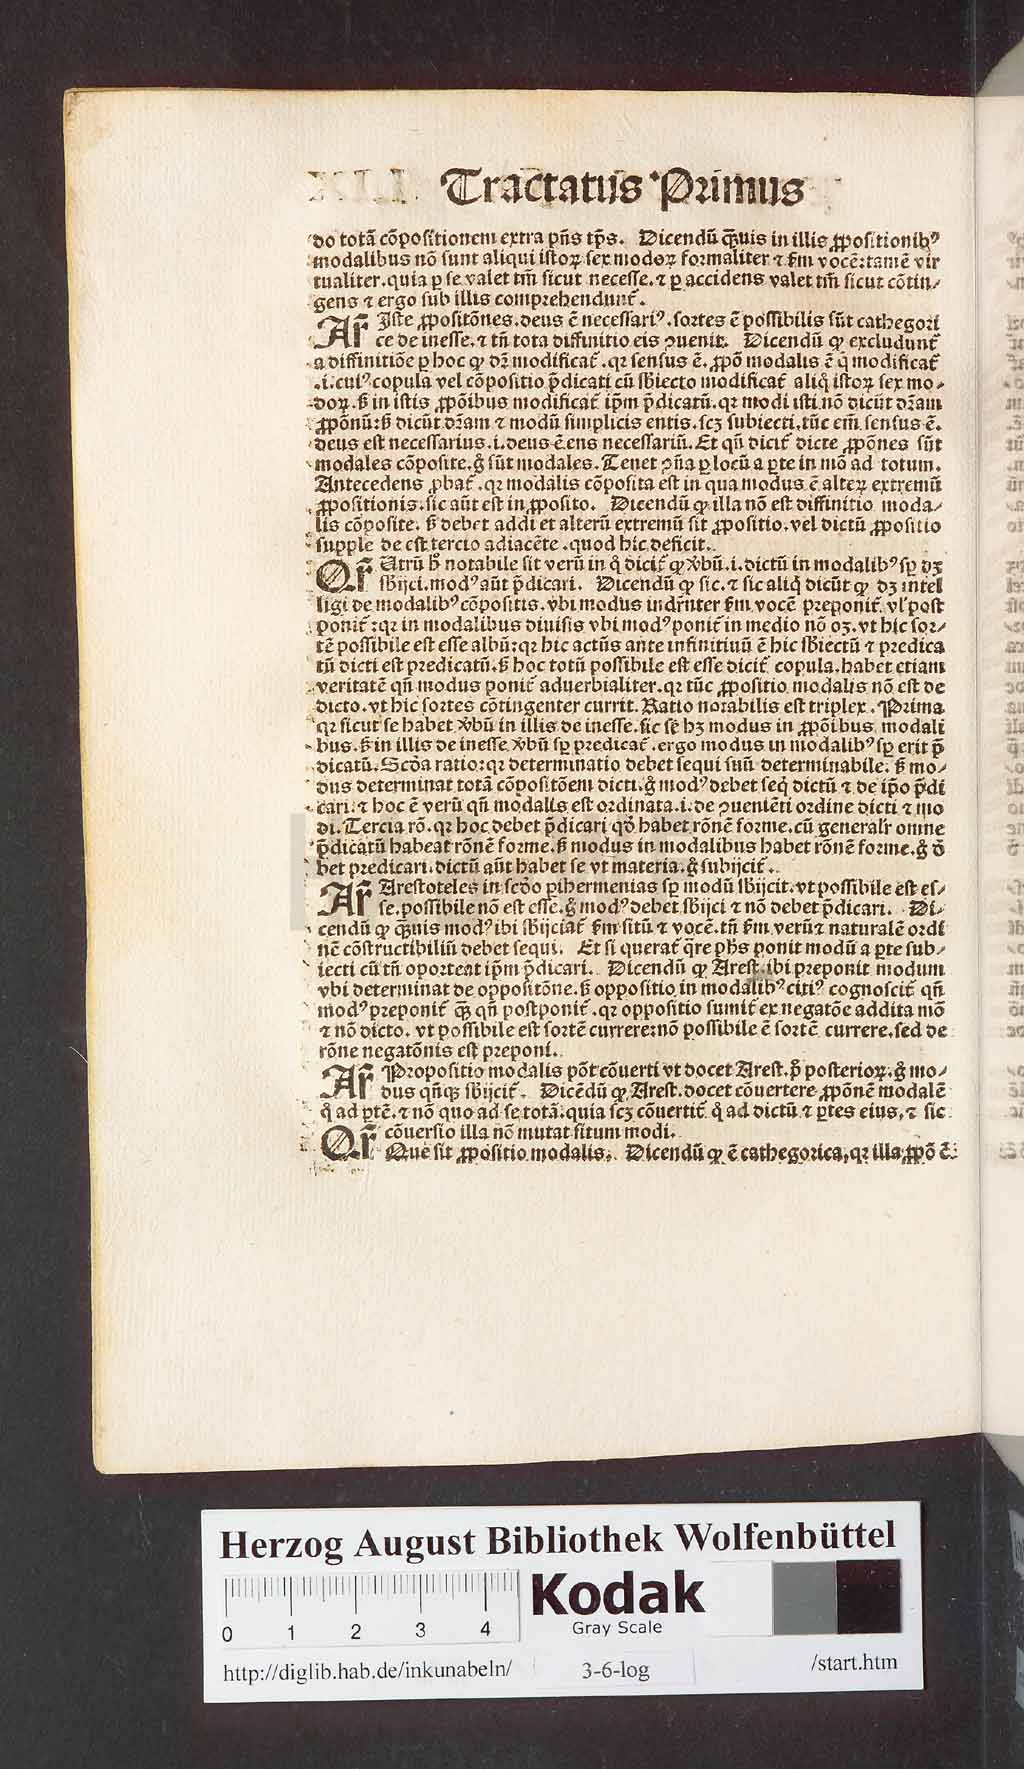 Tractatus Primus
do totã cõpositionem extra pñs tp̃s. Dicendũ qꝫuis in illis ꝓpositionibꝰ
modalibus nõ sunt aliqui istoꝝ sex modoꝝ formaliter ⁊ s̃m vocẽ: tamẽ vir
tualiter. quia ꝑ se valet tm̃ sicut necesse. ⁊ ꝑ accidens valet tm̃ sicut cõtin⸗
gens ⁊ ergo sub illis comprehendunt̃.
Ar̃ Iste ꝓpositõnes. deus ẽ necessariꝰ. sortes ẽ possibilis sũt cathegori
ce de inesse. ⁊ tñ tota diffinitio eis ꝯuenit. Dicendũ ꝙ excludunt̃
a diffinitiõe ꝑ hoc ꝙ dr̃ modificat̃. qꝛ sensus ẽ. ꝓpõ modalis ẽ q̃ modificat̃
.i. cuiꝰ copula vel cõpositio p̃dicati cũ sb̃iecto modificat̃ aliq̊ istoꝝ sex mo⸗
doꝝ. sꝫ in istis ꝓpõibus modificat̃ ip̃m p̃dicatũ. qꝛ modi isti nõ dicũt dr̃am
ꝓpõnũ: sꝫ dicũt dr̃am ⁊ modũ simplicis entis. scꝫ subiecti. tũc em̃ sensus ẽ.
deus est necessarius .i. deus ẽ ens necessariũ. Et qñ dicit̃ dicte ꝓpõnes sũt
modales cõposite. g̊ sũt modales. Tenet ꝯñа ꝑ locũ a ꝑte in mõ ad totum.
Antecedens ꝓbat̃. qꝛ modalis cõposita est in qua modus ẽ alteꝝ extremũ
ꝓpositionis. sic aũt est in ꝓposito. Dicendũ ꝙ illa nõ est diffinitio moda⸗
lis cõposite. sꝫ debet addi et alterũ extremũ sit ꝓpositio. vel dictũ ꝓpositio
supple de est tercio adiacẽte. quod hic deficit.
Qr̃ Utrũ h̊ notabile sit verũ in q̊ dicit̃ ꝙ v̊bũ .i. dictũ in modalibꝰ sꝑ dꝫ
sb̃ijci. modꝰ aũt p̃dicari. Dicendũ ꝙ sic. ⁊ sic aliq̃ dicũt ꝙ dꝫ intel
ligi de modalibꝰ cõpositis. vbi modus indr̃nter s̃m vocẽ preponit̃. vl̓ post
ponit̃: qꝛ in modalibus diuisis vbi modꝰ ponit̃ in medio nõ oꝫ. vt hic sor⸗
tẽ possibile est esse albũ: qꝛ hic actũs ante infinitiuũ ẽ hic sb̃iectũ ⁊ predica
tũ dicti est predicatũ. sꝫ hoc totũ possibile est esse dicit̃ copula. habet etiam
veritatẽ qñ modus ponit̃ aduerbialiter. qꝛ tũc ꝓpositio modalis nõ est de
dicto. vt hic sortes cõtingenter currit. Ratio notabilis est triplex. Prima
qꝛ sicut se habet v̊bũ in illis de inesse. sic se hꝫ modus in ꝓpõibus modali
bus. sꝫ in illis de inesse v̊bũ sꝑ predicat̃. ergo modus in modalibꝰ sꝑ erit p̃
dicatũ. Scd̃a ratio: qꝛ determinatio debet sequi suũ determinabile. sꝫ mo⸗
dus determinat totã cõpositõem dicti. g̊ modꝰ debet seq̃ dictũ ⁊ de ip̃o p̃di
cari. ⁊ hoc ẽ verũ qñ modalis est ordinata .i. de ꝯueniẽti ordine dicti ⁊ mo
di. Tercia rõ. qꝛ hoc debet p̃dicari qd̃ habet rõnẽ forme. cũ generalr̃ omne
p̃dicatũ habeat rõnẽ forme. sꝫ modus in modalibus habet rõnẽ forme. g̊ d̃
bet predicari. dictũ aũt habet se vt materia. g̊ subijcit̃.
Ar̃ Arestoteles in scd̃o pihermenias sꝑ modũ sb̃ijcit. vt possibile est es⸗
se. possibile nõ est esse. g̊ modꝰ debet sb̃ijci ⁊ nõ debet p̃dicari. Di⸗
cendũ ꝙ qꝫuis modꝰ ibi sb̃ijciat̃ s̃m sitũ ⁊ vocẽ. tñ s̃m verũ ⁊ naturalẽ ordi
nẽ cõstructibiliũ debet sequi. Et si querat̃ q̃re ph̃s ponit modũ a ꝑte sub⸗
iecti cũ tñ oporteat ip̃m p̃dicari. Dicendũ ꝙ Arest. ibi preponit modum
vbi determinat de oppositõne. sꝫ oppositio in modalibꝰ citiꝰ cognoscit̃ qñ
modꝰ preponit̃ qꝫ qñ postponit̃. qꝛ oppositio sumit̃ ex negatõe addita mõ
⁊ nõ dicto. vt possibile est sortẽ currere: nõ possibile ẽ sortẽ currere. sed de
rõne negatõnis est preponi.
Ar̃ Propositio modalis põt cõuerti vt docet Arest. p̊ posterioꝝ. g̊ mo⸗
dus qñqꝫ sb̃ijcit̃. Dicẽdũ ꝙ Arest. docet cõuertere ꝓpõnẽ modalẽ
q̊ ad ꝑtẽ. ⁊ nõ quo ad se totã. quia scꝫ cõuertit̃ q̊ ad dictũ ⁊ ꝑtes eius, ⁊ sic
cõuersio illa nõ mutat situm modi.
Qr̃ Que sit ꝓpositio modalis. Dicendũ ꝙ ẽ cathegorica, qꝛ illa ꝓpõ ẽ
Herzog August Bibliothek Wolfenbüttel
0 1 2 3 4
Kodak
Gray Scale
http://diglib.hab.de/inkunabeln/ 3-6-log /start.htm